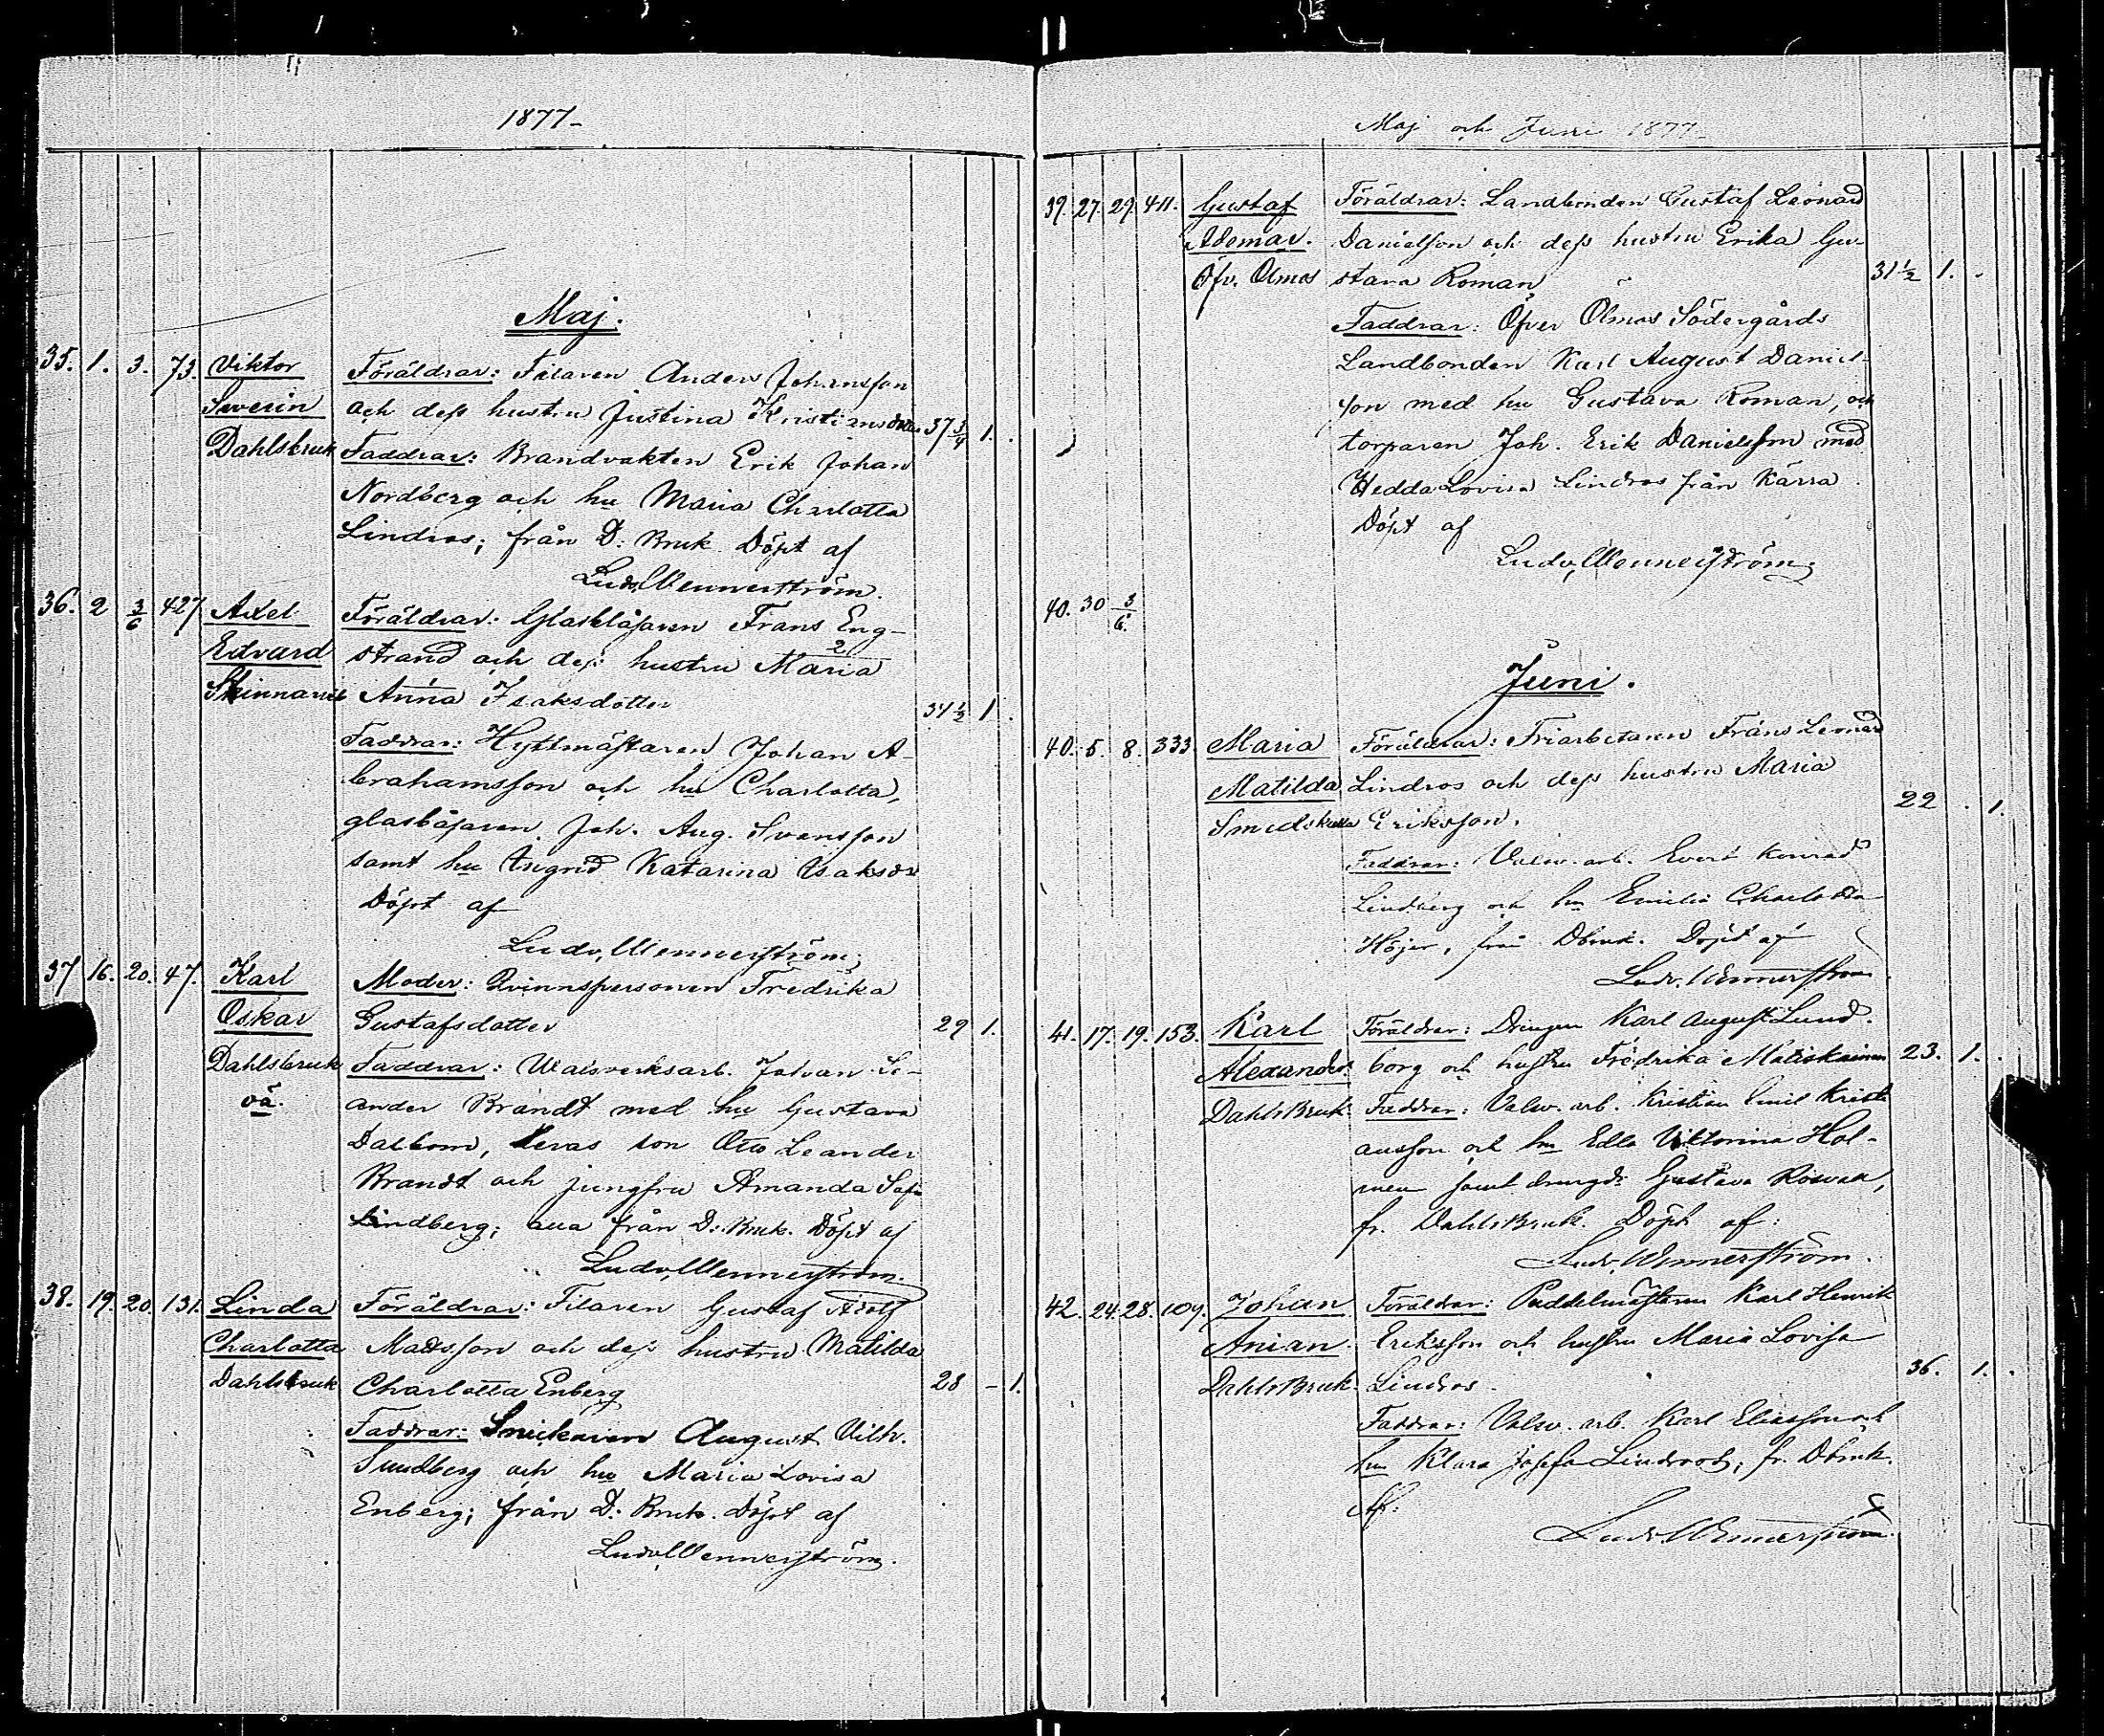 1877
Maj.
35. 1. 3. 73. Viktor Föräldrar: Filaren Anders Johansson
Severin och dess hustru Justina Kristiansdotter 37 3/4 1.
Dahlsbruk Faddrar: Brandvakten Erik Johan
Nordberg och hu Maria Charlotta
Lindros; från D: Bruk Döpt af
Ludv. Wennerström.
36. 2 3/6 427 Axel Föräldrar: Glasblåsaren Frans Eng-
Edvard strand och dess hustru Maria 2
Anna 1 Isaksdotter 34 1/2 1.
Faddrar: Hyttmästaren Johan A-
brahamsson och hu Charlotta,
glasblåsaren Joh. Aug. Svensson
samt hu Ingrid Katarina Isaksdr
Döpt af
Ludv. Wennerström.
37 16. 20. 47. Karl Moder: Qvinnspersonen Fredrika
Oskar Gustafsdotter 29 1.
Dahlsbruk Faddrar: Walsverksarb. Johan Le-
oä. ander Brandt med hu Gustava
Dalbom, deras son Otto Leander
Brandt och jungfru Amanda Sofia
Lindberg; alla från D: Bruk. Döpt af
Ludv. Wennerström.
38. 19. 20. 131. Linda Föräldrar: Filaren Gustaf Adolf
Charlotta Madsson och dess hustru Matilda
Dahlsbruk Charlotta Enberg 28 - 1.
Faddrar: Snickaren August Vilh.
Sundberg och hu Maria Lovisa
Enberg; från D: Bruk. Döpt af
Ludv. Wennerström.
Maj och Juni 1877
39. 27. 29. 411. Gustaf Föräldrar: Landbonden Gustaf Leonard
Ademar. Danielson och dess hustru Erika Gu-
Öfv. Ölmos stava Roman 31 1/2 1.
Faddrar: Öfver Ölmos Södergårds
Landbonden Karl August Daniel-
son med hu Gustava Roman, och
torparen Joh. Erik Danielsson med
Hedda Lovisa Lindros från Kärra
Döpt af
Ludv. Wennerström.
40. 30 3/6.
Juni.
40. 5. 8. 333. Maria Föräldrar: Friarbetaren Frans Leonard
Matilda Lindros och dess hustru Maria
Eriksson. 22 . 1.
Faddrar: Valsv. arb. Evert Konrad
Lindberg och hu Emilia Charlotta
Höjer, från Dbruk. Döpt af
Ludv. Wennerström
41. 17. 19. 153. Karl Föräldrar: Drängen Karl August Lund-
Alexander. borg och hustru Fredrika Matiskainen 23. 1.
Dahls Bruk. Faddrar: Valsv. arb. Kristian Emil Kristi
ansson och hu Edla Viktorina Hol-
men samt Gustava Roman,
fr. Dahls Bruk. Döpt af:
Ludv. Wennerström.
42. 24. 28. 109. Johan Föräldrar: Puddelmästaren Karl Henrik
Anian. Eriksson och hustru Maria Lovisa
Dahls Bruk. Lindros. 36. 1.
Faddrar: Valsv. arb. Karl Eliasson och
hu Klara Josefa Lindroos, fr. Dbruk.
Af:
Ludv. Wennerström